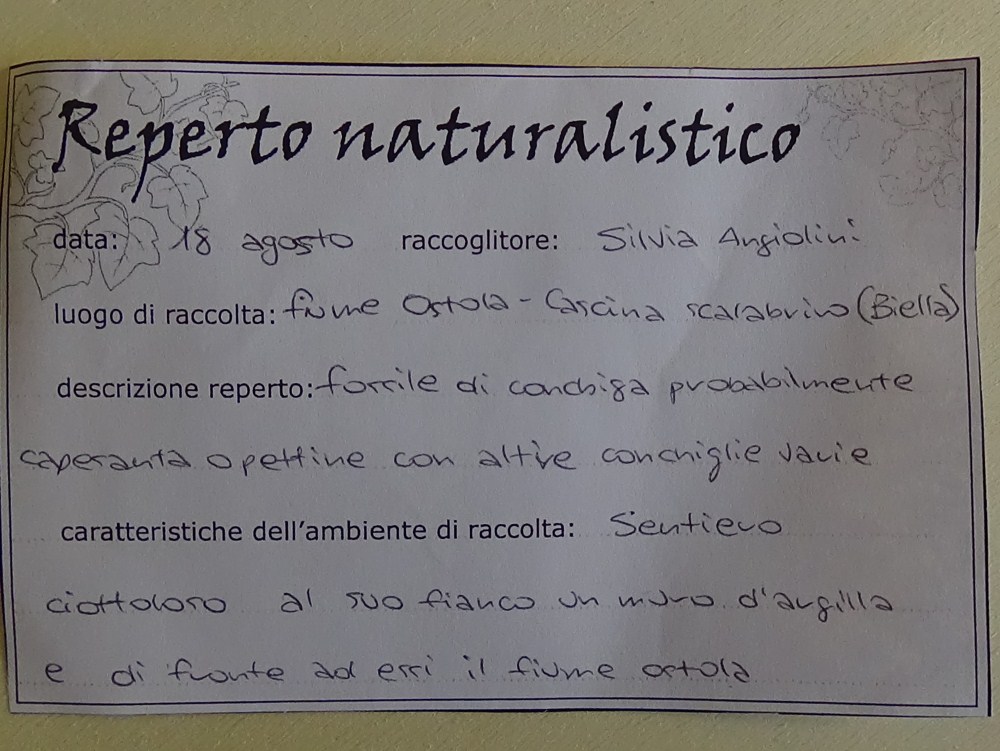 Reperto naturalistico
data: 18 agosto raccoglitore: Silvia Angiolini
luogo di raccolta: fiume Ostola - Cascina scarabrino (Biella)
descrizione reperto: fossile di conchiga probabilmente
capesanta o pettine con altre conchiglie varie
caratteristiche dell'ambiente di raccolta: Sentiero
ciottoloso al suo fianco un muro d'argilla
e di fronte ad essi il fiume ostola